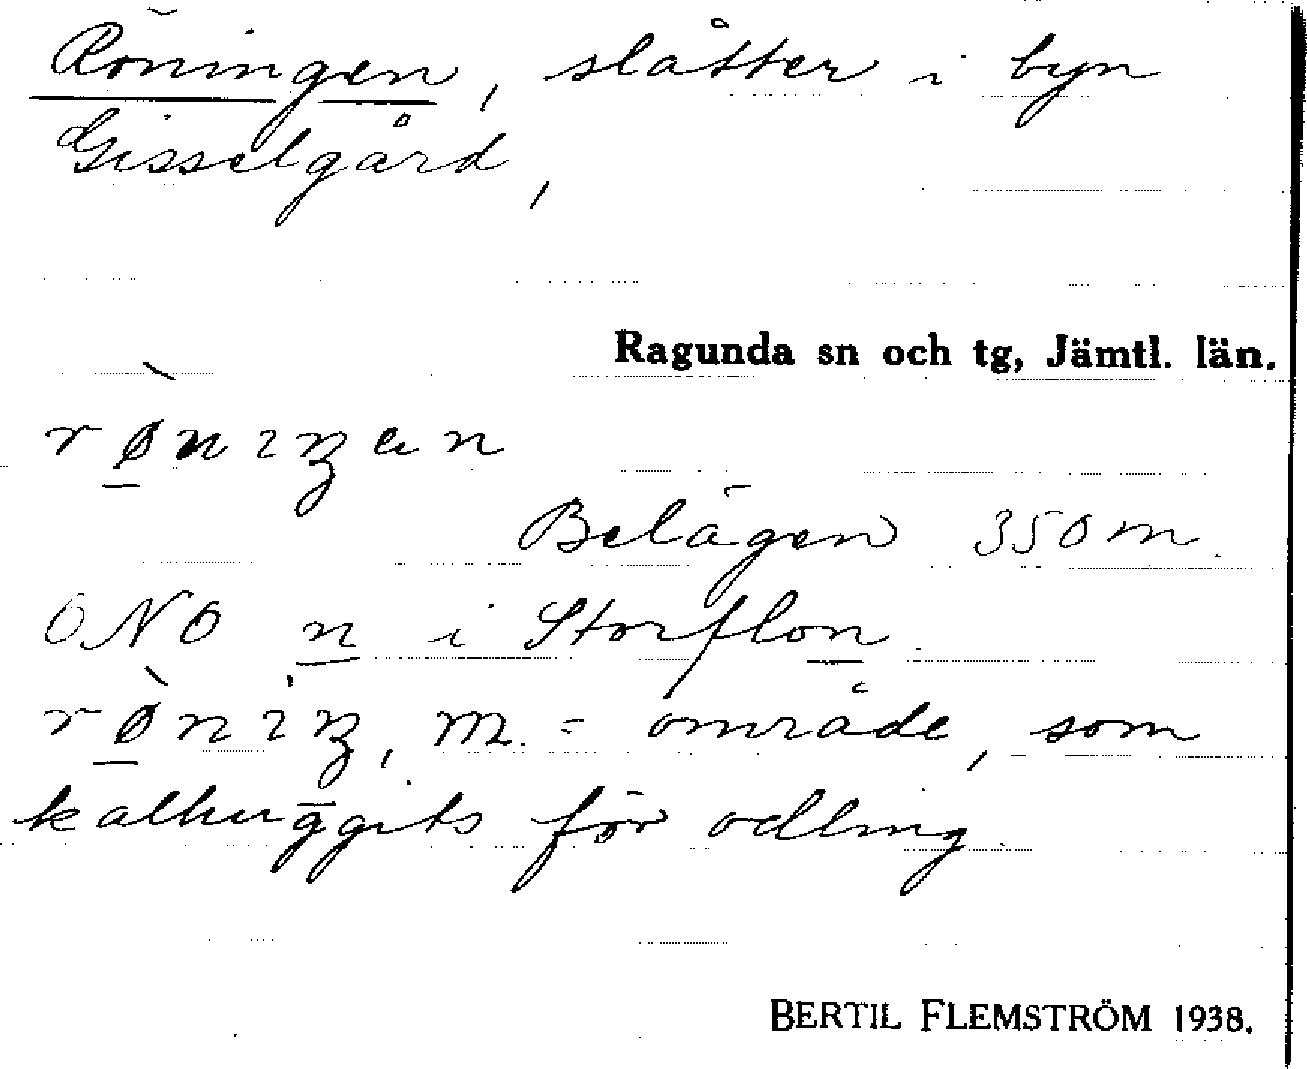 Röningen, slåtter i byn
Gisselgård,
Ragunda sn och tg, Jämtl. län.
rø̀niŋan
Belägen 350 m.
ONO n i Storflon.
rø̀niŋ, m. = område, som
kalhuggits för odling.
BERTIL FLEMSTRÖM 1938.